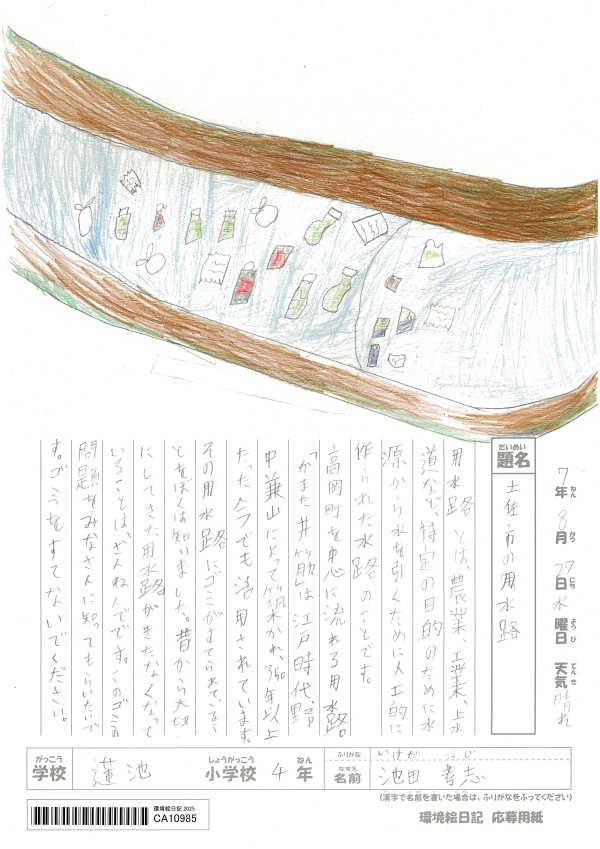 7年 8月 27日 水曜日 天気 晴れ
ねん がつ にち ようび てんき
だいめい
題名 土佐市の用水路
用水路とは、農業、工業、上水
道など、特定の目的のために水
源から水を引くために人工的に
作られた水路のことです。
高岡町を中心に流れる用水路。
「かまた井筋」は江戸時代、野
中兼山によって築かれ、350年以上
たった今でも活用されています。
その用水路にゴミがすてられている
ことをぼくは知りました。昔から大切
にしてきた用水路がきたなくなって
いることは、ざんねんです。このゴミの
問題をみなさんに知ってもらいたいで
す。ゴミをすてないでください。
がっこう しょうがっこう ねん
学校 蓮池 小学校 4年
ふりがな いけだ こうじ
なまえ
名前 池田 孝志
(漢字で名前を書いた場合は、ふりがなをふってください)
環境絵日記 応募用紙
環境絵日記 2025
CA10985